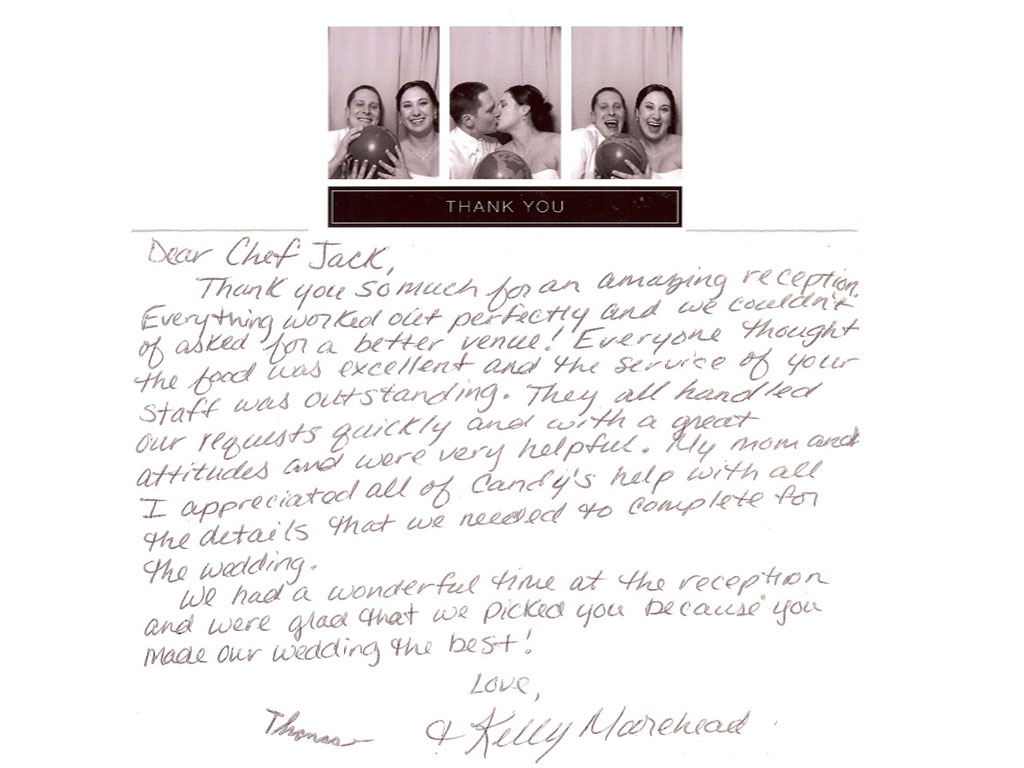 THANK YOU
Dear Chef Jack,
Thank you so much for an amazing reception.
Everything worked out perfectly and we couldn't
of asked for a better venue! Everyone thought
the food was excellent and the service of your
staff was outstanding. They all handled
our requests quickly and with a great
attitudes and were very helpful. My mom and
I appreciated all of Candy's help with all
the details that we needed to complete for
the wedding.
We had a wonderful time at the reception
and were glad that we picked you because you
made our wedding the best!
Love,
Thomas & Kelly Moorehead